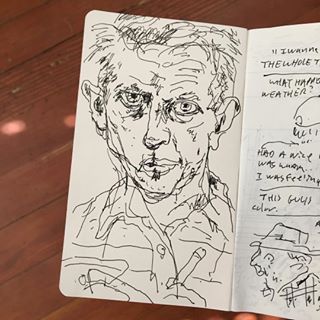 "I WANNA
THE WHOLE T
WHAT HAPP
WEATHER?
HAD A NICE
WAS WARM..
I WAS FEELING
THIS GUY'S
COLOR.